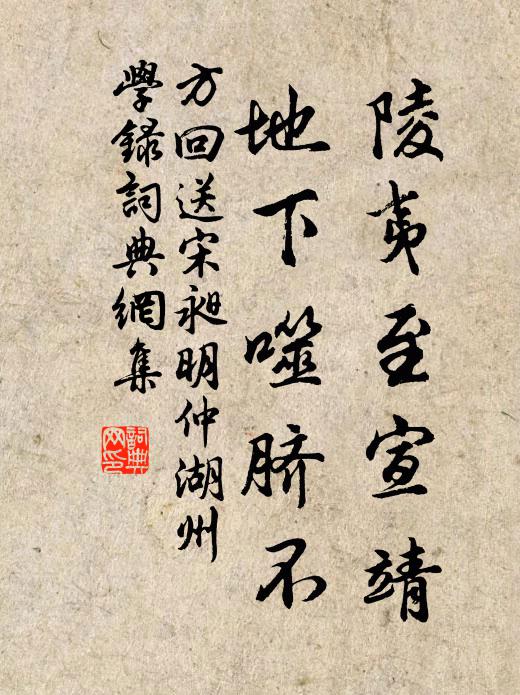 陵夷至宣靖
地下噬脐不
方回送宋昶明仲湖州
學録詞典網集
詞典网印